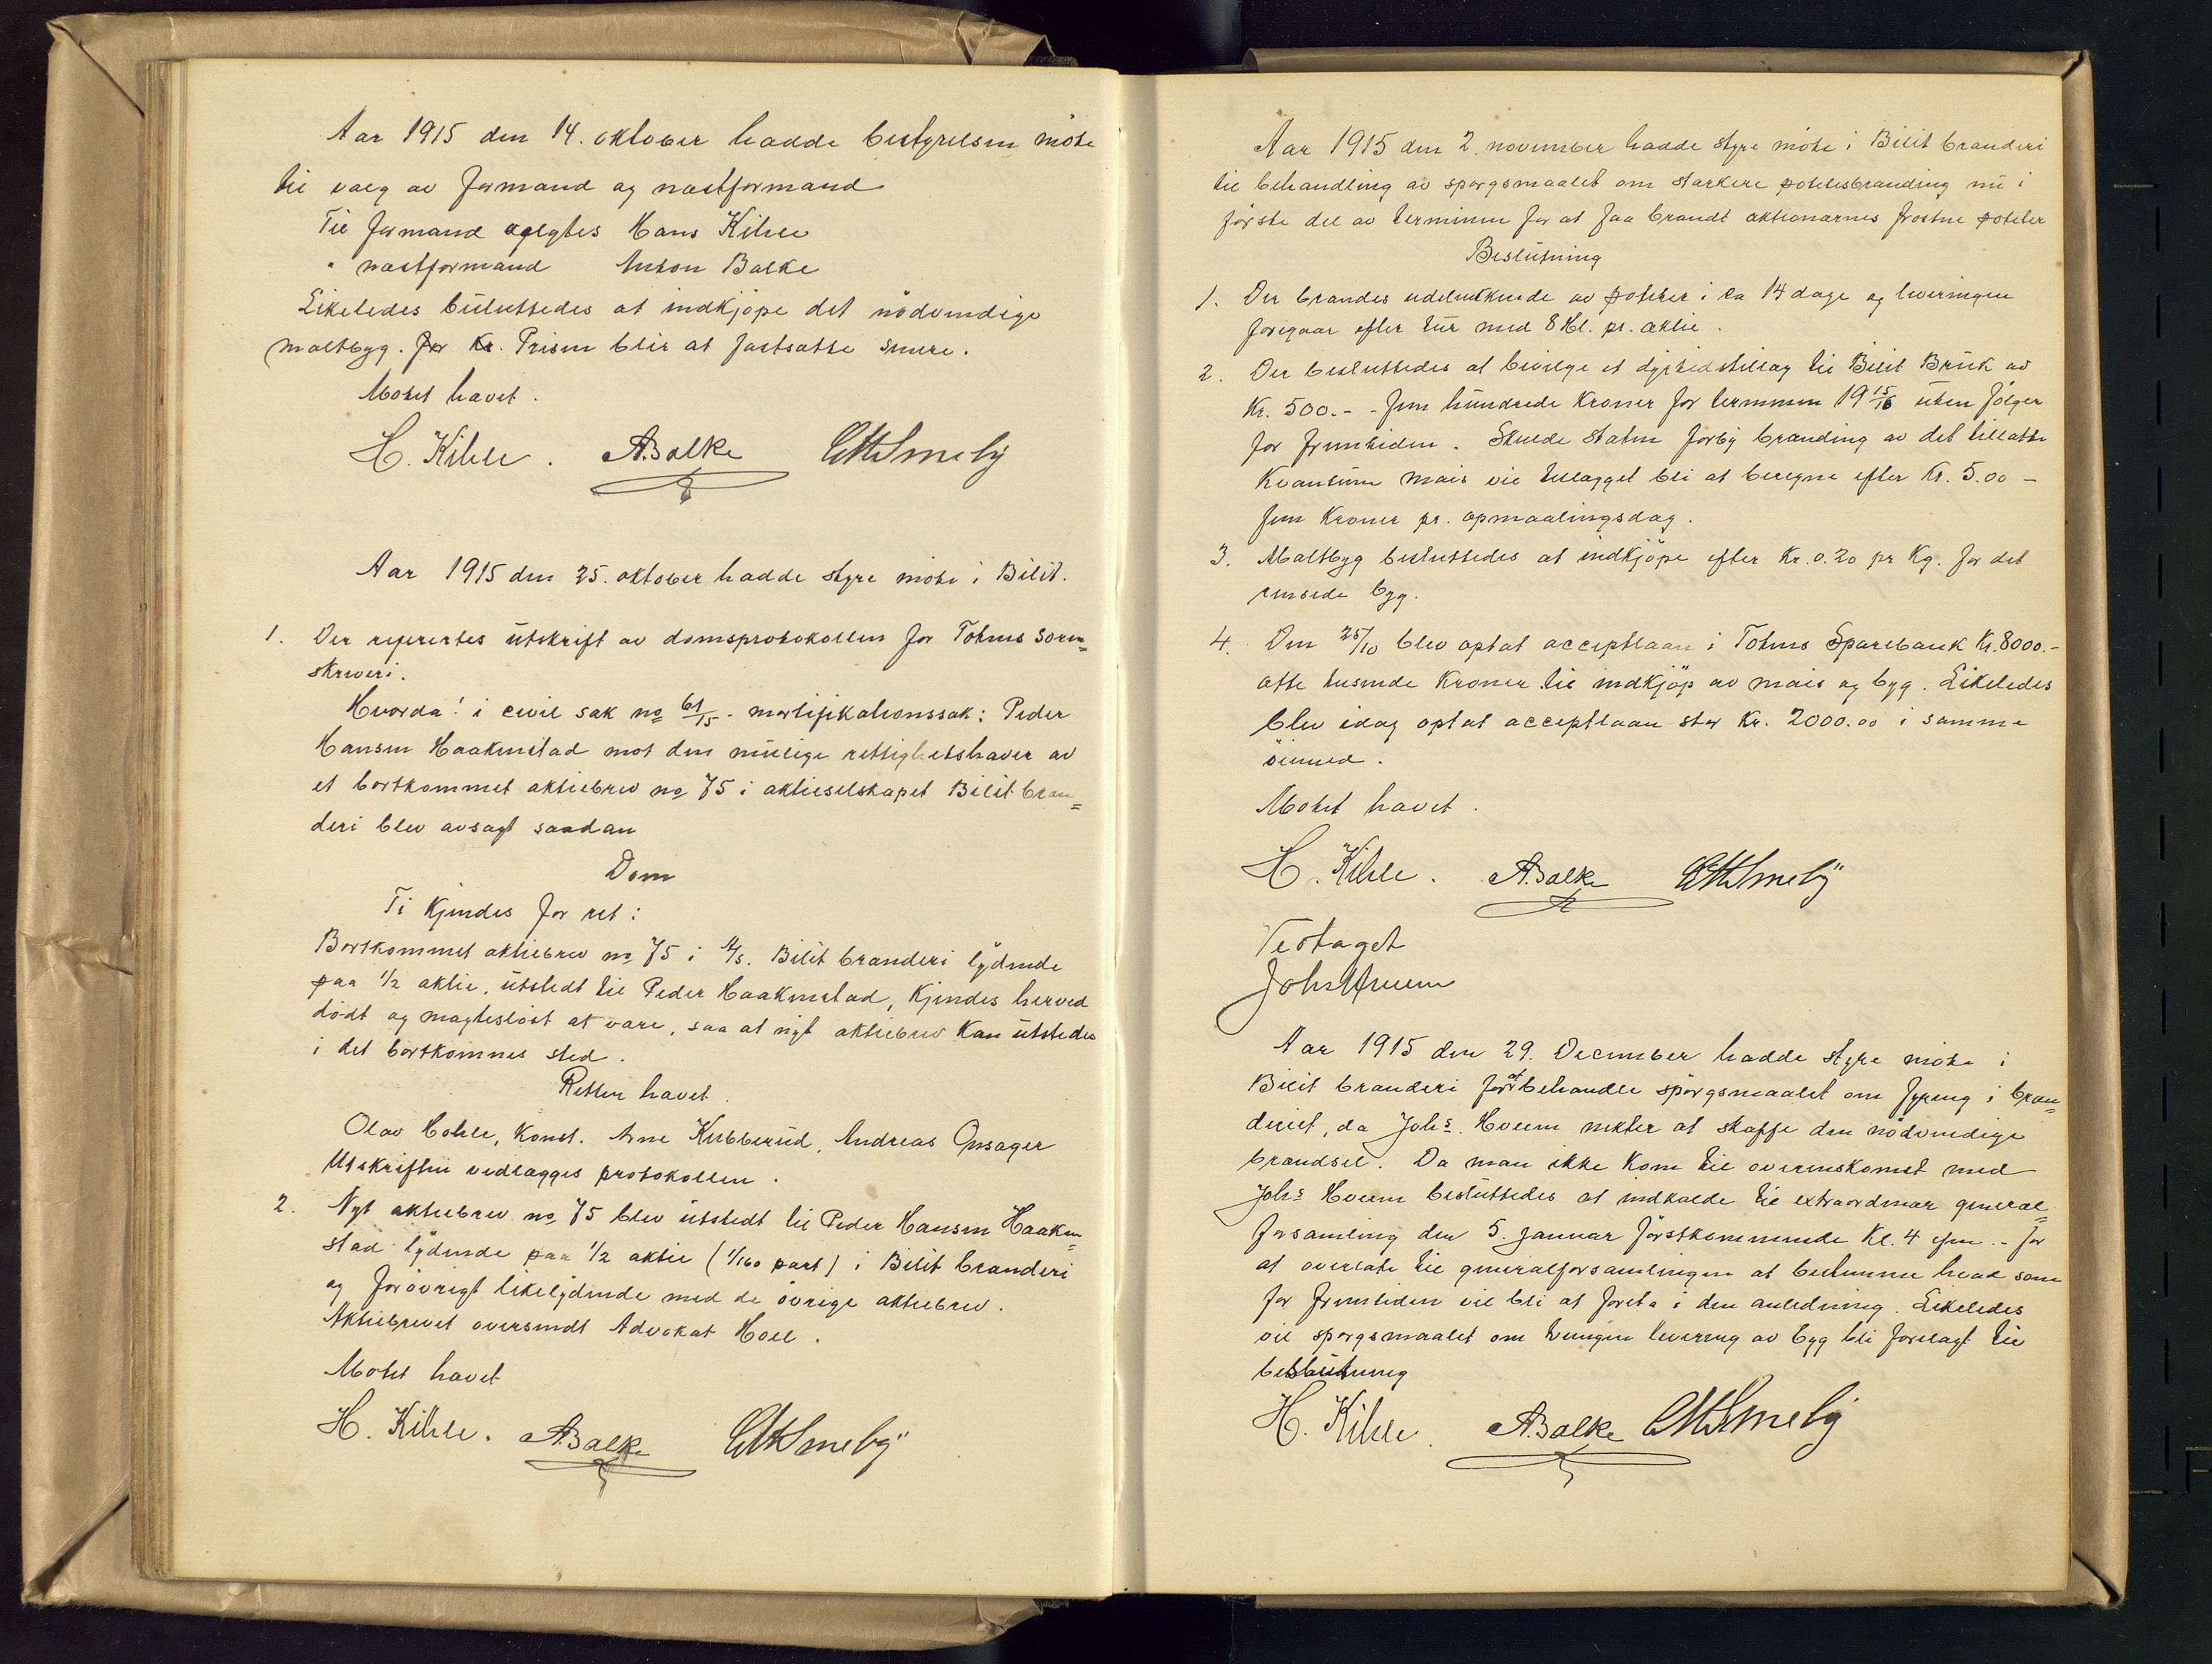 Aar 1915 den 14. oktober hadde bestyrelsen möte
til valg av formand og næstformand
Til formand valgtes Hans Kihle
" næstformand Anton Balke
Likeledes besluttedes at indkjöpe det nödvendige
maltbyg. for Kr. Prisen blir at fastsætte senere.
Motet hævet.
H. Kihle. A. Balke
Aar 1915 den 25. oktober hadde styre möte i Bilit.
1. Der referertes utskrift av domsprotokollen for Totens soren=
skriveri.
Hvorda: i civil sak no 61/15 - mortifikationssak: Peder
Hansen Haakenstad mot den mulige rettighetshaver av
et bortkommet aktiebrev no 75 i aktieselskapet Bilit bran=
deri blev avsagt saadan
Dom
Ti Kjendes for ret:
Bortkommet aktiebrev no 75 i A/S. Bilit brænderi lydende
paa 1/2 aktie, utstedt til Peder Haakenstad, Kjendes herved
dödt og magteslöst at være, saa at nyt aktiebrev kan utstedes
i det bortkomnes sted.
Retten hævet.
Olav Hohle, Konst. Arne Kubberud, Andreas Onsager
Utskriften vedlægges protokollen.
2. Nyt aktiebrev no 75 blev utstedt til Peder Hansen Haaken=
stad lydende paa 1/2 aktie (1/160 part) i Bilit brænderi
og forövrigt likelydende med de övrige aktiebrev.
Aktiebrevet oversendt Advokat Holl.
Motet hævet
H. Kihle. A. Balke
Aar 1915 den 2. november hadde styre möte i Bilit brænderi
til behandling av spörgsmaalet om stærkere potetesbrænding nu i
förste del av terminen for at faa brændt aktionærnes frosne poteter
Beslutning
1. Der brændes udelukkende av poteter i ca 14 dage og leveringen
foregaar efter tur med 8 Hl. pr. aktie.
2. Der besluttedes at bevilge et dyrtidstillæg til Bilit Bruk av
Kr. 500.- - fem hundrede Kroner for terminen 19 15/16 uten fölger
for fremtiden. Skulde Staten forby brænding av det tillatte
Kvantum mais vil tillægget bli at beregne efter Kr. 5.00 -
fem Kroner pr. opmaalingsdag.
3. Maltbyg besluttedes at indkjöpe efter Kr. 0.20 pr Kg. for det
rensede byg.
4. Den 25/10 blev optat acceptlaan i Totens Sparebank Kr. 8000.-
otte tusende Kroner til indkjöp av mais og byg. Likeledes
blev idag optat acceptlaan stor Kr. 2000.00 i samme
öiemed.
Motet hævet.
H. Kihle. A. Balke
Vedtaget
Johs Hveem
Aar 1915 den 29. December hadde styre möte i
Bilit brænderi for at behandle spörgsmaalet om fyring i bræn=
deriet, da Johs. Hveem nekter at skaffe den nödvendige
brændsel. Da man ikke kom til overenskomst med
Johs Hveem besluttedes at indkalde til extraordinær general=
forsamling den 5. Januar förstkommende Kl. 4 em. - for
at overlate til generalforsamlingen at bestemme hvad som
for fremtiden vil bli at foreta i den anledning. Likeledes
vil spörgsmaalet om tvungen levering av byg bli forelagt til
beslutning
H. Kihle. A. Balke